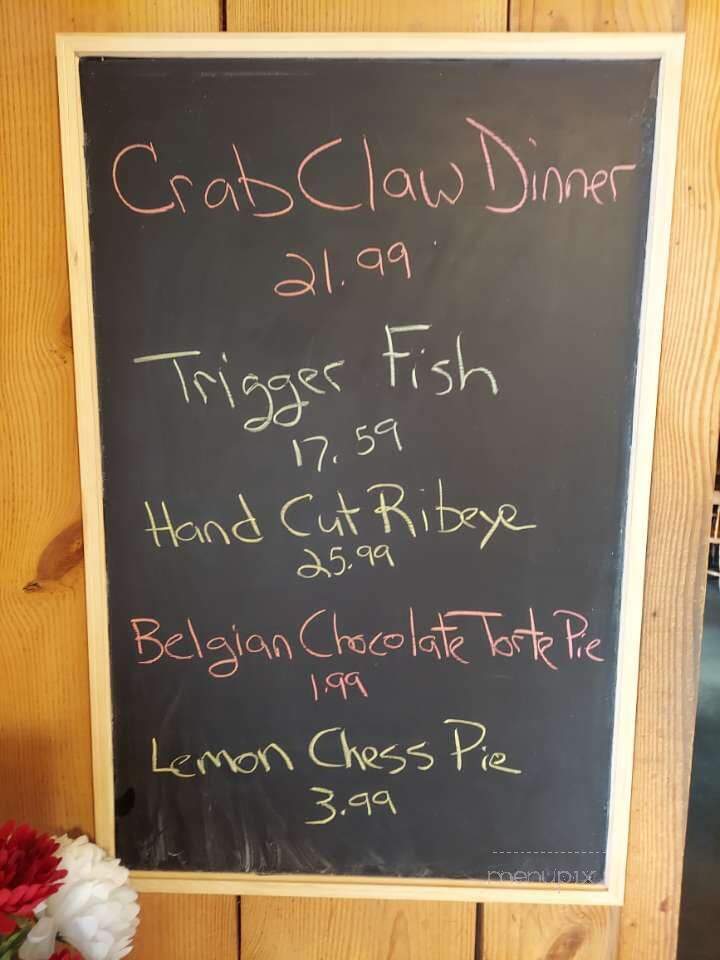 Crab Claw Dinner
21.99
Trigger Fish
17.59
Hand Cut Ribeye
25.99
Belgian Chocolate Torte Pie
1.99
Lemon Chess Pie
3.99
menupix